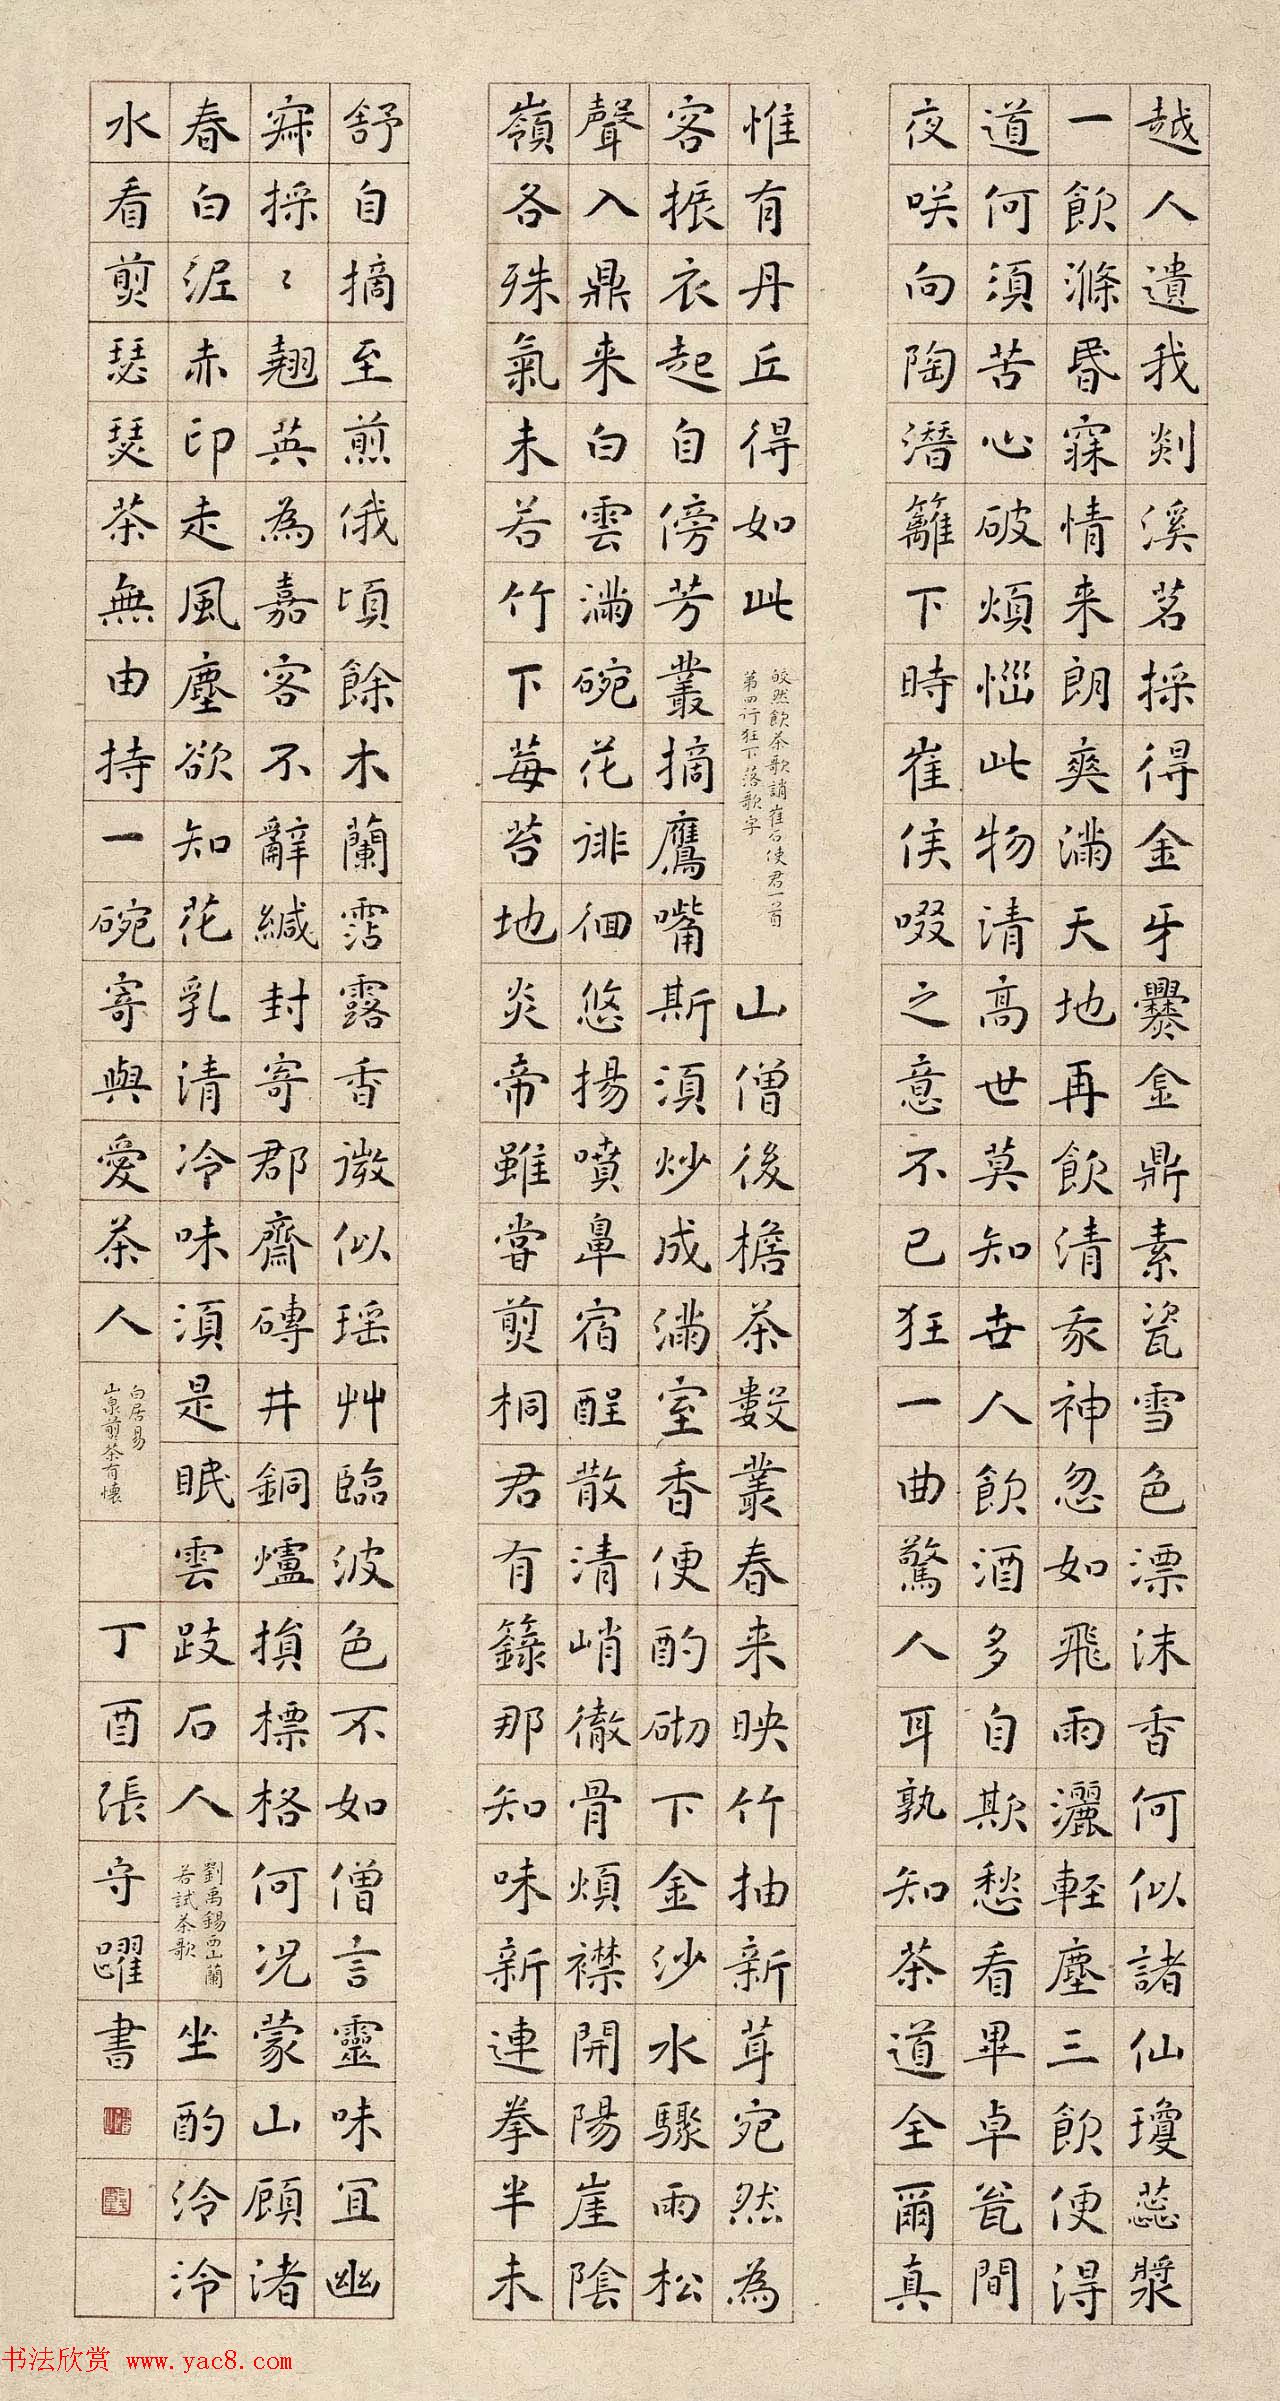 越人遺我剡溪茗採得金牙爨金鼎素瓷雪色漂沫香何似諸仙瓊蕊漿
一飲滌昏寐情来朗爽滿天地再飲清我神忽如飛雨灑輕塵三飲便得
道何須苦心破煩惱此物清高世莫知世人飲酒多自欺愁看畢卓瓮間
夜咲向陶潛籬下時崔侯啜之意不已狂一曲驚人耳孰知茶道全爾真
惟有丹丘得如此
皎然飲茶歌誚崔石使君一首
第四行狂下落歌字
山僧後檐茶數叢春来映竹抽新茸宛然為
客振衣起自傍芳叢摘鷹嘴斯須炒成滿室香便酌砌下金沙水驟雨松
聲入鼎来白雲滿碗花徘徊悠揚噴鼻宿酲散清峭徹骨煩襟開陽崖陰
嶺各殊氣未若竹下莓苔地炎帝雖嘗煎桐君有籙那知味新連拳半未
舒自摘至煎俄頃餘木蘭霑露香微似瑶艸臨波色不如僧言靈味宜幽
寂採〻翹英為嘉客不辭緘封寄郡齋磚井銅爐損標格何況蒙山顧渚
春白泥赤印走風塵欲知花乳清冷味須是眠雲跂石人
劉禹錫西山蘭
若試茶歌
坐酌泠泠
水看煎瑟瑟茶無由持一碗寄與愛茶人
白居易
山泉煎茶有懷
丁酉張守躍書
书法欣赏 www.yac8.com